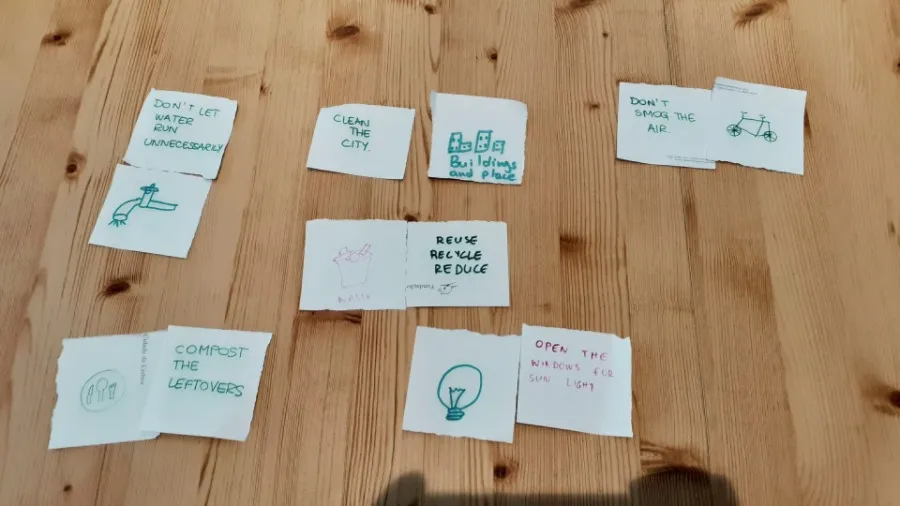 DON'T LET
WATER
RUN
UNNECESSARILY
CLEAN
THE
CITY.
Buildings
and place
DON'T
SMOG THE
AIR.
WASTE
REUSE
RECYCLE
REDUCE
Fundação
Cidade de Lisboa
COMPOST
THE
LEFTOVERS
OPEN THE
WINDOWS FOR
SUN LIGHT